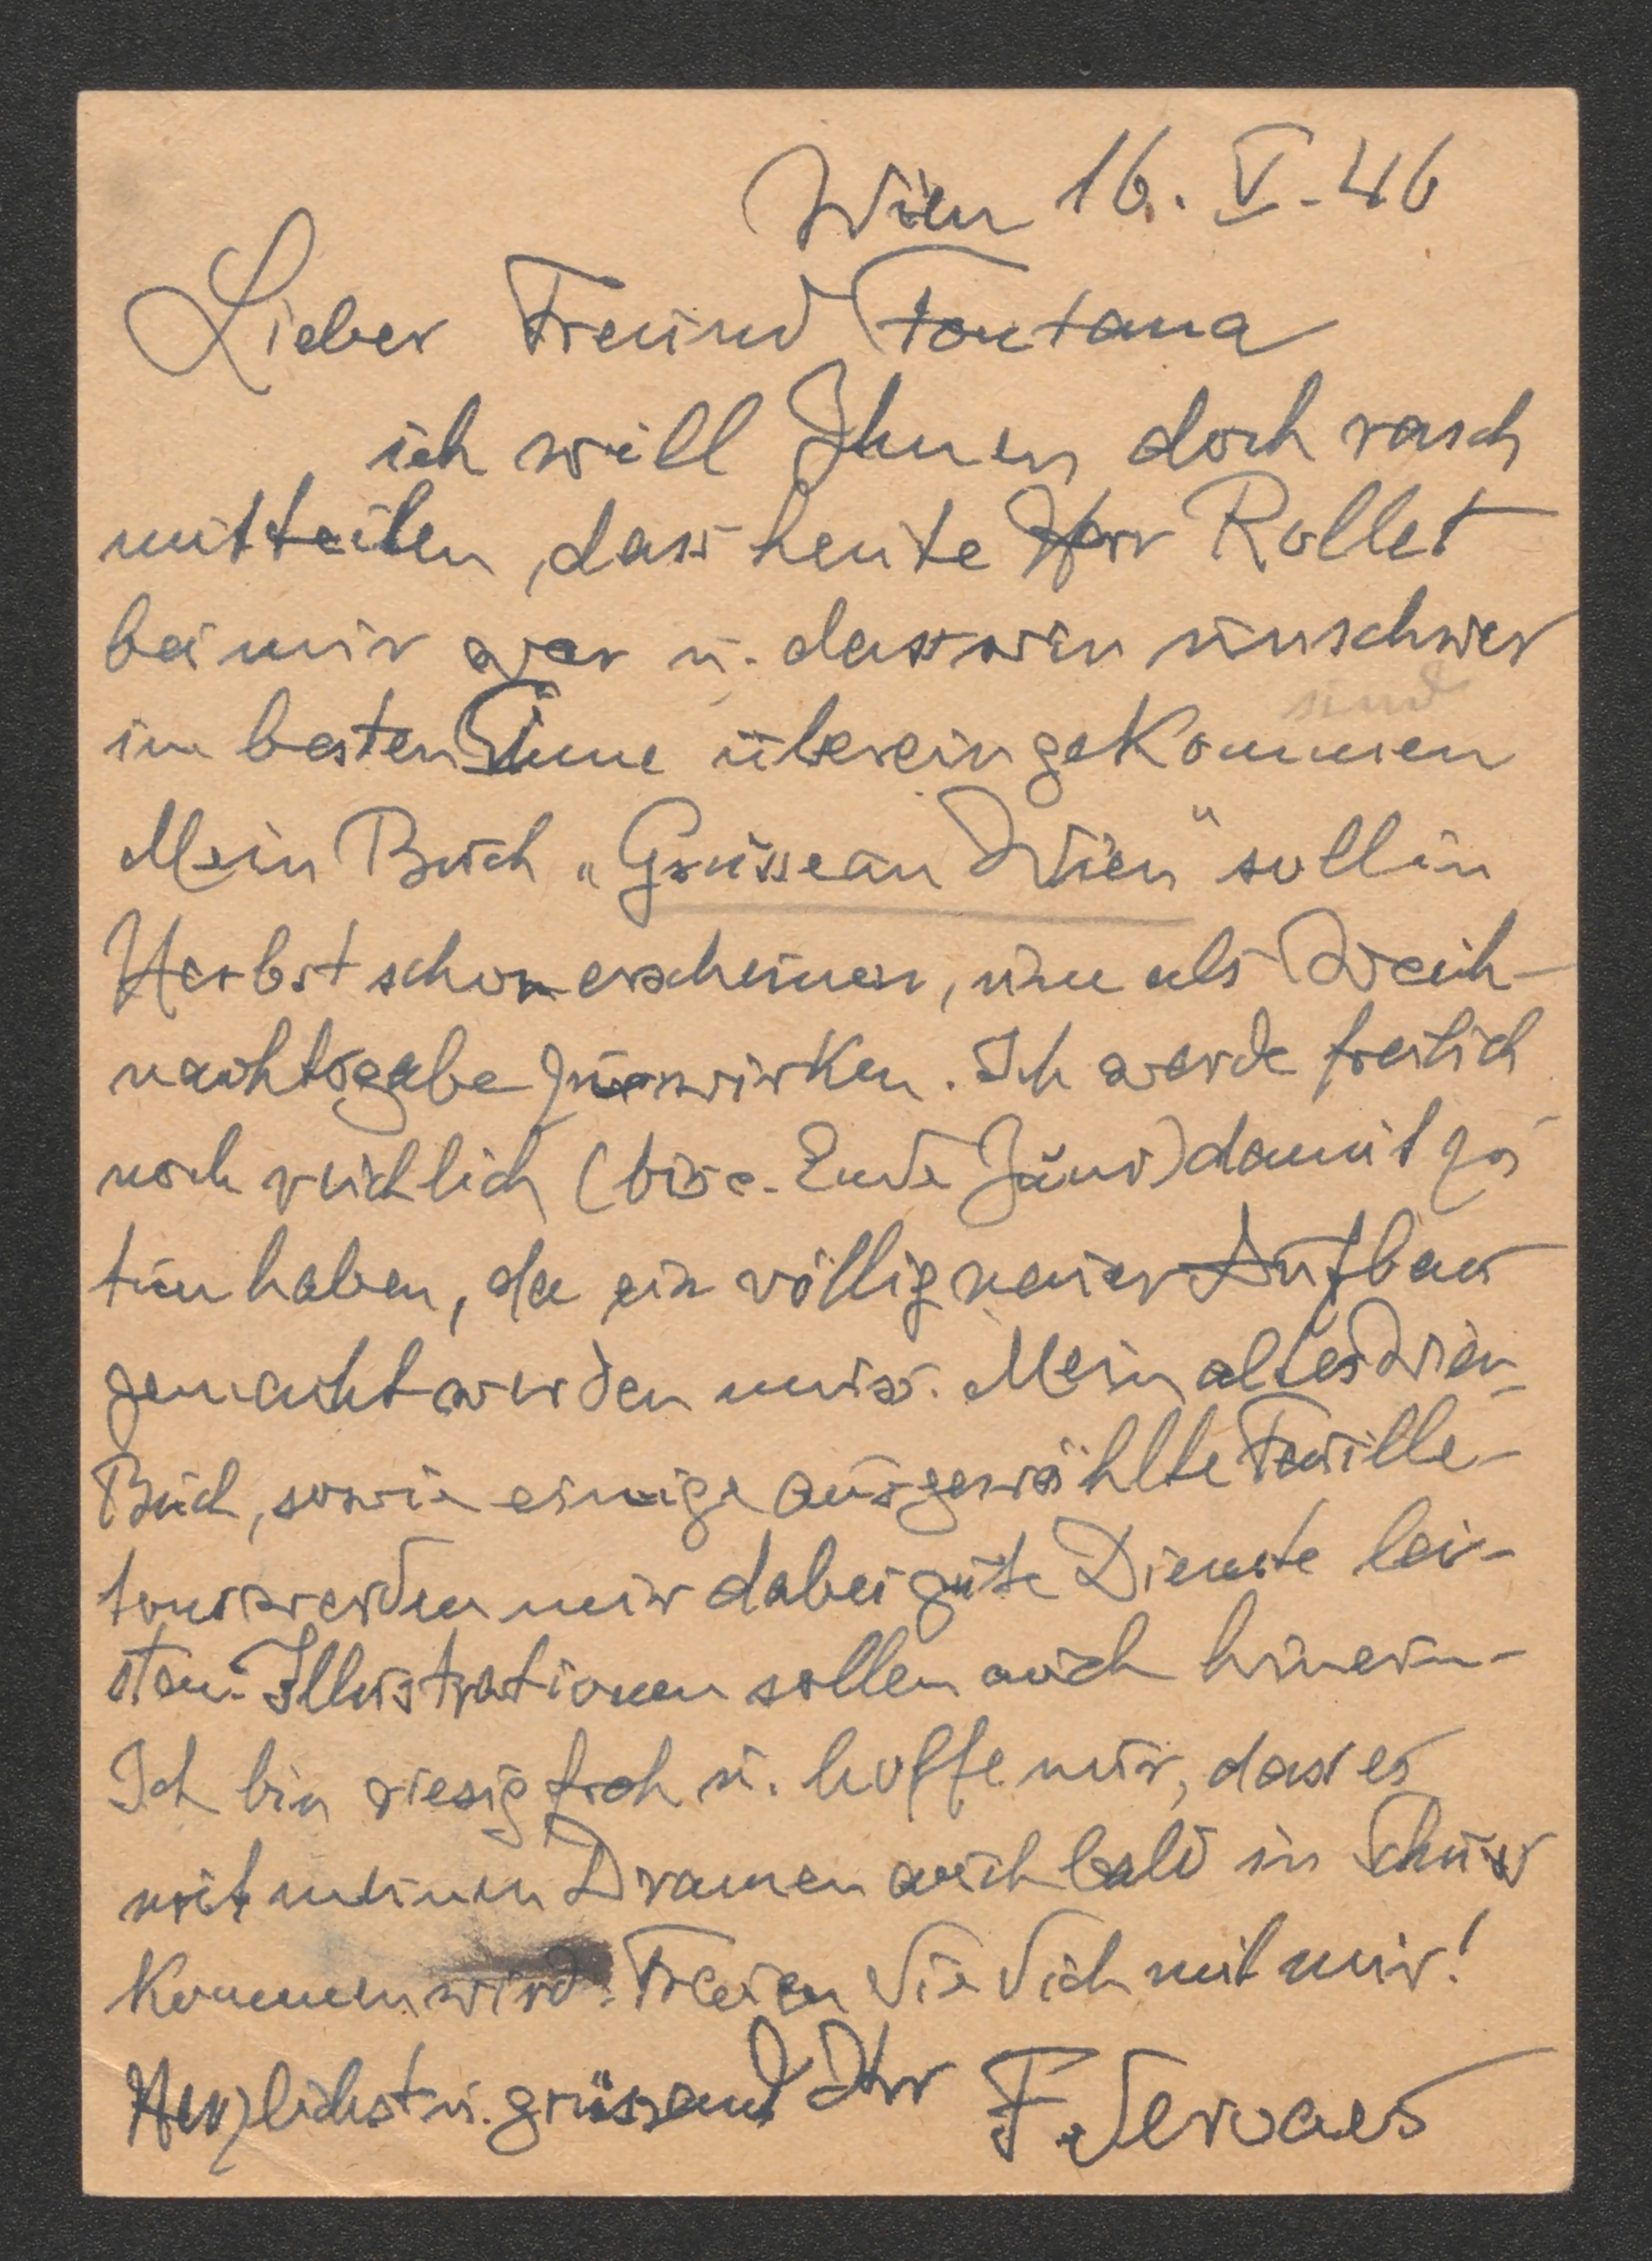 Wien 16. V. 46
Lieber Freund Fontana
ich will Ihnen doch rasch
mitteilen, dass heute Herr Rollet
bei mir war u. dass wir unschwer
sind
im besten Sinne übereingekommen
Mein Buch „Grüsse an Wien" soll im
Herbst schon erscheinen, um als Weih-
nachtsgabe zu wirken. Ich werde freilich
noch reichlich (bis c. Ende Juni) damit zu
tun haben, da ein völlig neuer Aufbau
gemacht werden muss. Mein altes Wien-
Buch, sowie einige ausgewählte Feuille-
tons werden mir dabei gute Dienste lei-
sten. Illustrationen sollen auch hinein-
Ich bin riesig froh u. hoffe nur, dass es
mit meinen Dramen auch bald in Schuss
kommen wird. Freuen Sie Sich mit mir!
Herzlichst u. grüssend Ihr F. Servaes